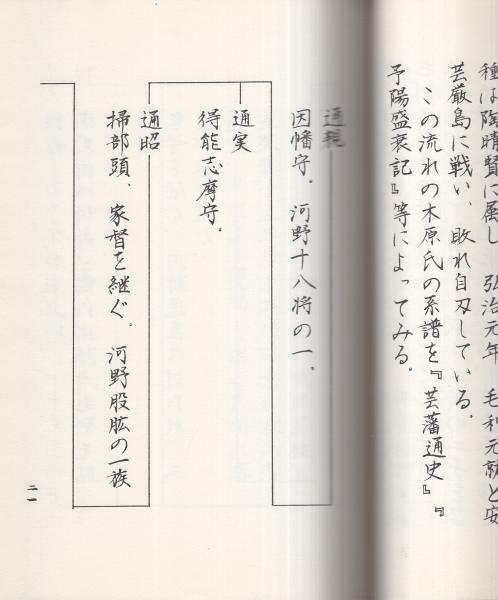 種は陶晴賢に属し 弘治元年 毛利元就と安
芸厳島に戦い、敗れ自刃している。
この流れの木原氏の系譜を『芸藩通史』『
予陽盛衰記』等によってみる。
通親
因幡守。河野十八将の一。
通実
得能志摩守。
通昭
掃部頭、家督を継ぐ。河野股肱の一族
二一